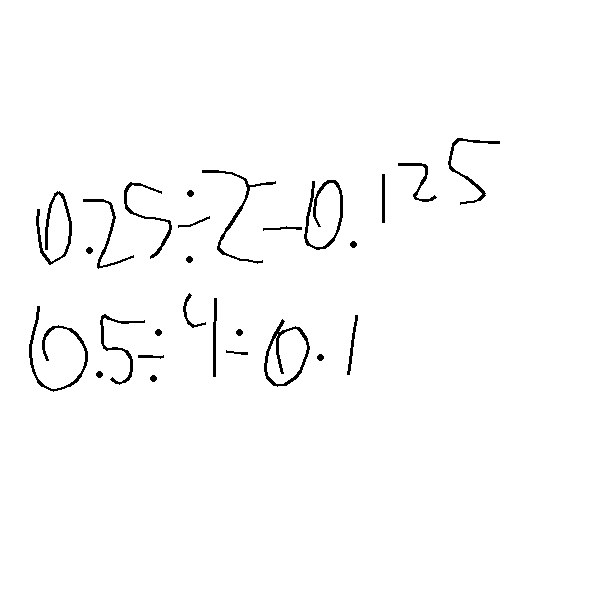 0.25÷2=0.125
0.5÷4÷0.1